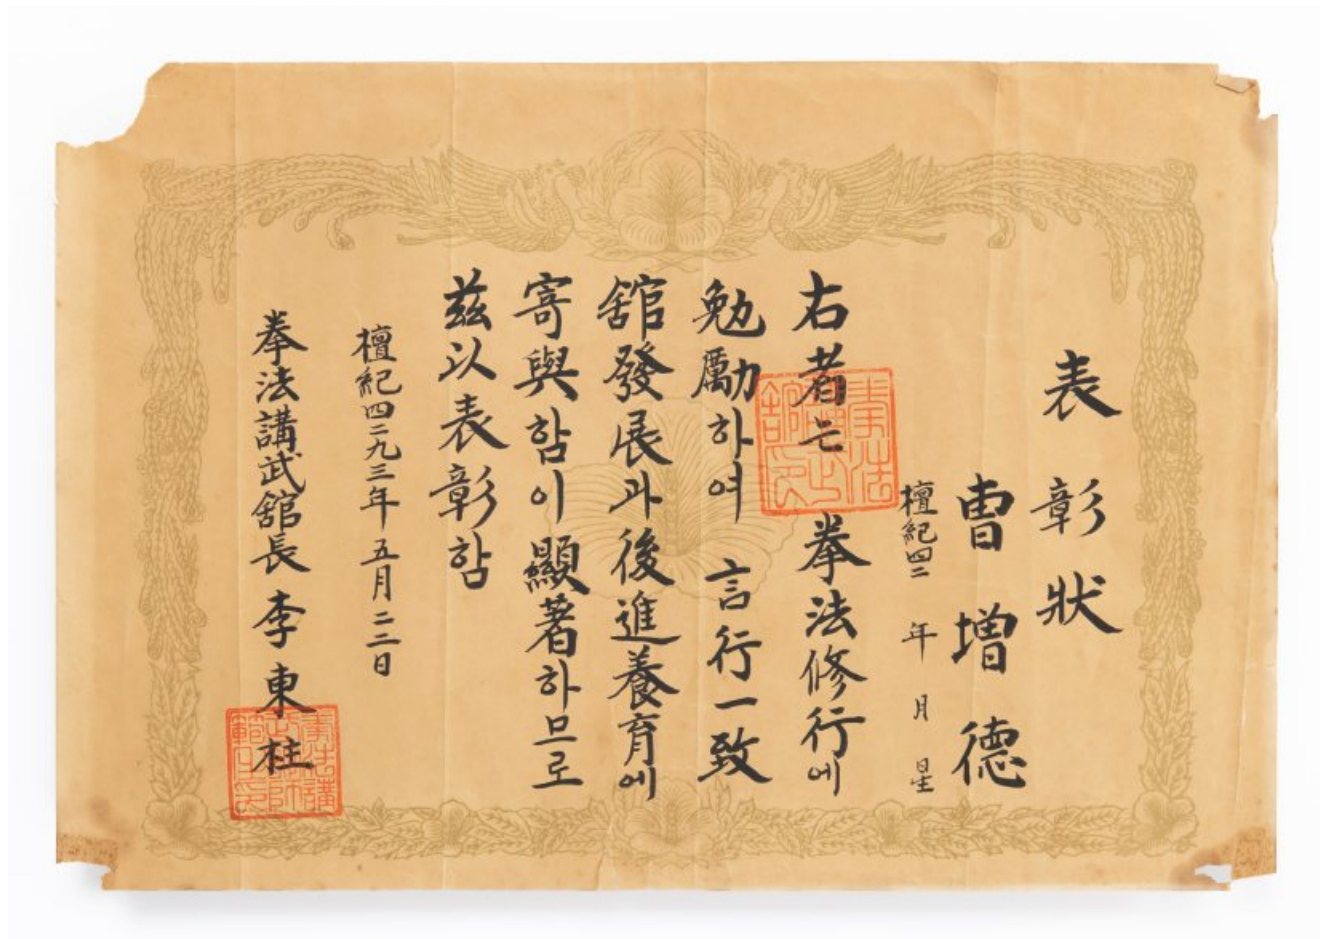 表彰狀
曺增德
檀紀四二 年 月 日生
右者는 拳法修行에
勉勵하여 言行一致
舘發展과 後進養育에
寄與함이 顯著하므로
玆以表彰함
檀紀四二九三年 五月二二日
拳法講武舘長 李東柱